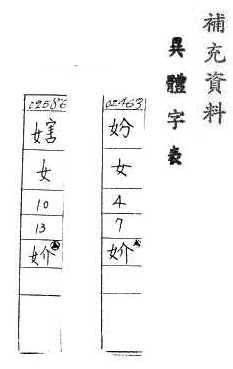 補充資料
異體字表
02463
妢
女
4
7
妎
02586
女
10
13
妎